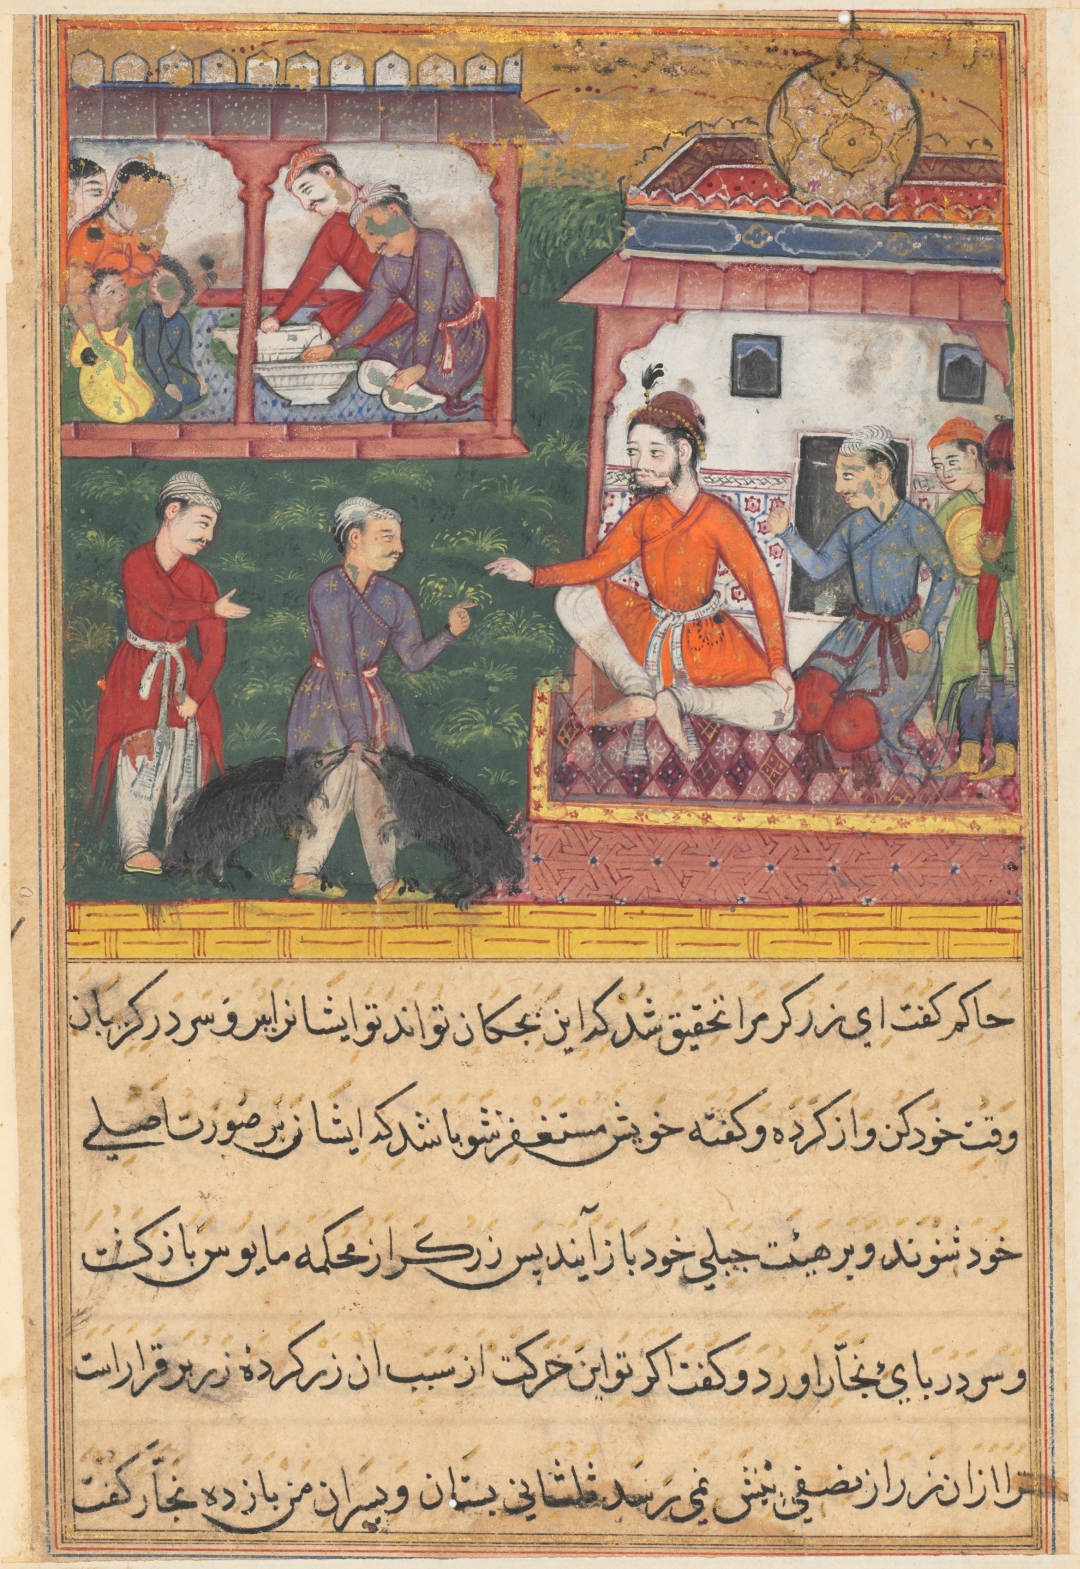 حاکم کفت ای زرکر مرا تحقیق شد که این بچکان تواند تو ایشانرا ببر و سر در کریبان
وقت خود کن و از کرده و کفته خویش مستغفر شو باشد که ایشان بر صورت اصلی
خود شوند و بر هیئت جبلی خود باز آیند پس زرکر از محکمه مایوس باز کشت
و سر در پای نجّار اورد و کفت اکر تو این حرکت از سبب ان زر کردهٔ زر بر قرار است
ترا ازان زر از نصفی بیش نمی رسد ثلثانی بستان و پسران من باز ده نجّار کفت